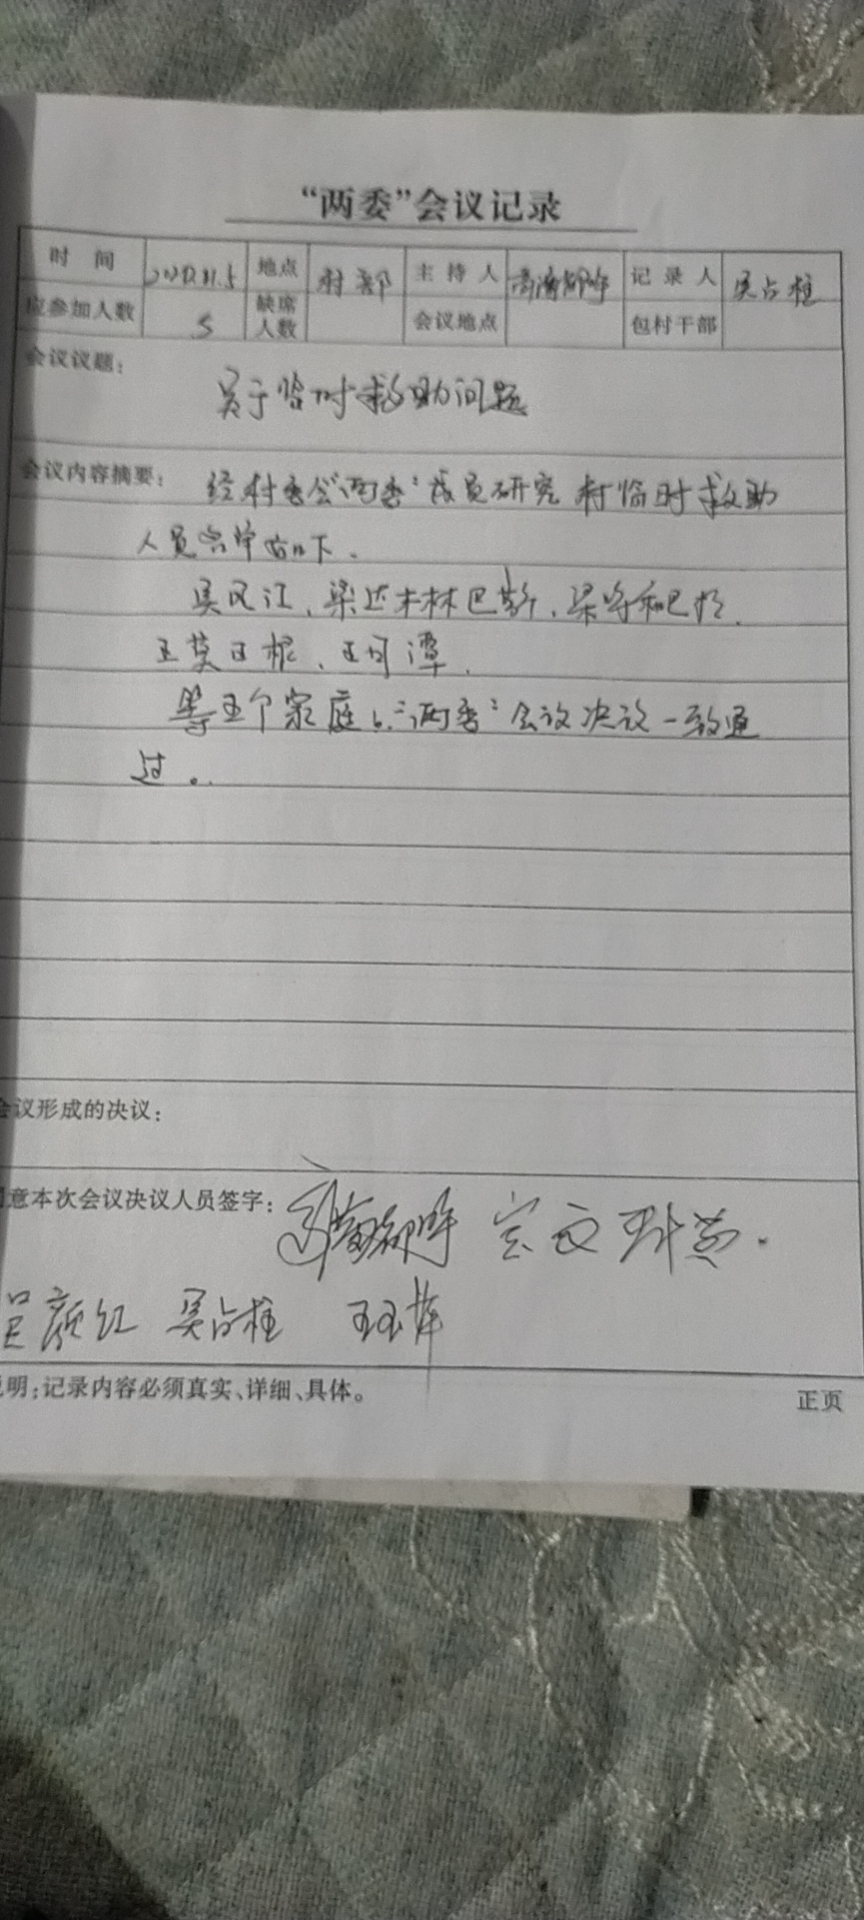 “两委”会议记录
时 间 地点 村部 主持人 记录人 吴占柱
应参加人数 5 缺席人数 会议地点 包村干部
会议议题：
关于临时救助问题
会议内容摘要： 经村委会“两委”成员研究 村临时救助
人员名单如下.
吴凤江、梁达木林巴斯、
王莫日根、
等五个家庭. “两委”会议决议一致通
过。
会议形成的决议：
同意本次会议决议人员签字：
吴占柱
说明：记录内容必须真实、详细、具体。 正页